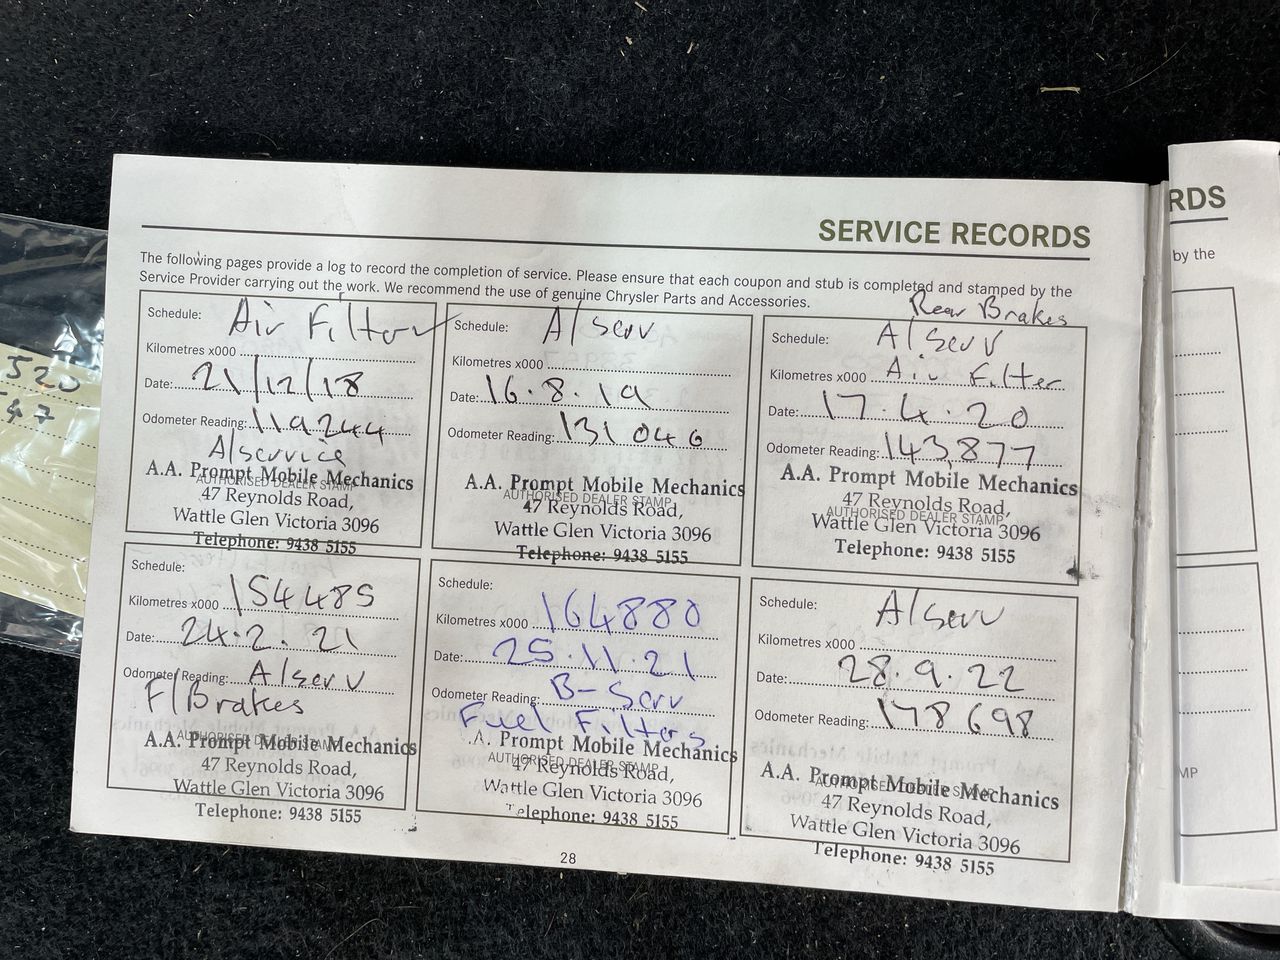 SERVICE RECORDS
The following pages provide a log to record the completion of service. Please ensure that each coupon and stub is completed and stamped by the
Service Provider carrying out the work. We recommend the use of genuine Chrysler Parts and Accessories.
Schedule: Air Filter
Kilometres x000
Date: 21/12/18
Odometer Reading: 119244
A/service
AUTHORISED DEALER STAMP
A.A. Prompt Mobile Mechanics
47 Reynolds Road,
Wattle Glen Victoria 3096
Telephone: 9438 5155
Schedule: A/serv
Kilometres x000
Date: 16.8.19
Odometer Reading: 131046
A.A. Prompt Mobile Mechanics
AUTHORISED DEALER STAMP
47 Reynolds Road,
Wattle Glen Victoria 3096
Telephone: 9438 5155
Rear Brakes
Schedule: A/Serv
Kilometres x000 Air Filter
Date: 17.4.20
Odometer Reading: 143,877
A.A. Prompt Mobile Mechanics
47 Reynolds Road,
AUTHORISED DEALER STAMP
Wattle Glen Victoria 3096
Telephone: 9438 5155
Schedule:
Kilometres x000 154485
Date: 24.2.21
Odometer Reading: A/serv
F/Brakes
AUTHORISED DEALER STAMP
A.A. Prompt Mobile Mechanics
47 Reynolds Road,
Wattle Glen Victoria 3096
Telephone: 9438 5155
Schedule:
Kilometres x000 164880
Date: 25.11.21
Odometer Reading: B-Serv
Fuel Filters
.A. Prompt Mobile Mechanics
AUTHORISED DEALER STAMP
47 Reynolds Road,
Wattle Glen Victoria 3096
Telephone: 9438 5155
Schedule: A/serv
Kilometres x000
Date: 28.9.22
Odometer Reading: 178698
A.A. Prompt Mobile Mechanics
47 Reynolds Road,
Wattle Glen Victoria 3096
Telephone: 9438 5155
28
RDS
by the
MP
520
47